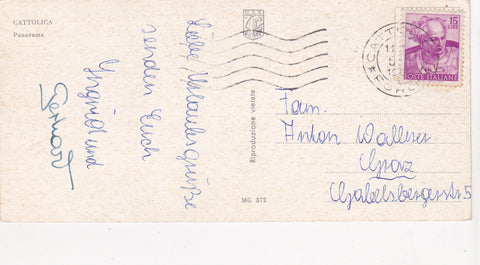 CATTOLICA
Panorama
Liebe Urlaubsgrüße
senden Euch
Yngrid und
Gerhard
Riproduzione vietata
MG 372
15
LIRE
POSTE ITALIANE
Fam.
Anton Wallner
Graz
Gabelsbergerstr 5